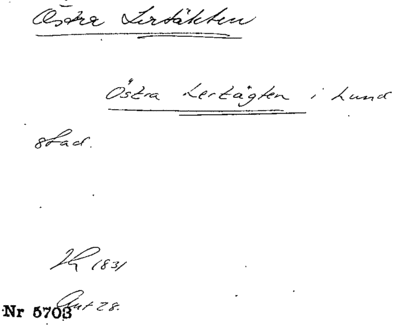 Östra Lertäkten
Östra Lertägten i Lund
stad.
1831
Akt 28.
Nr 5703